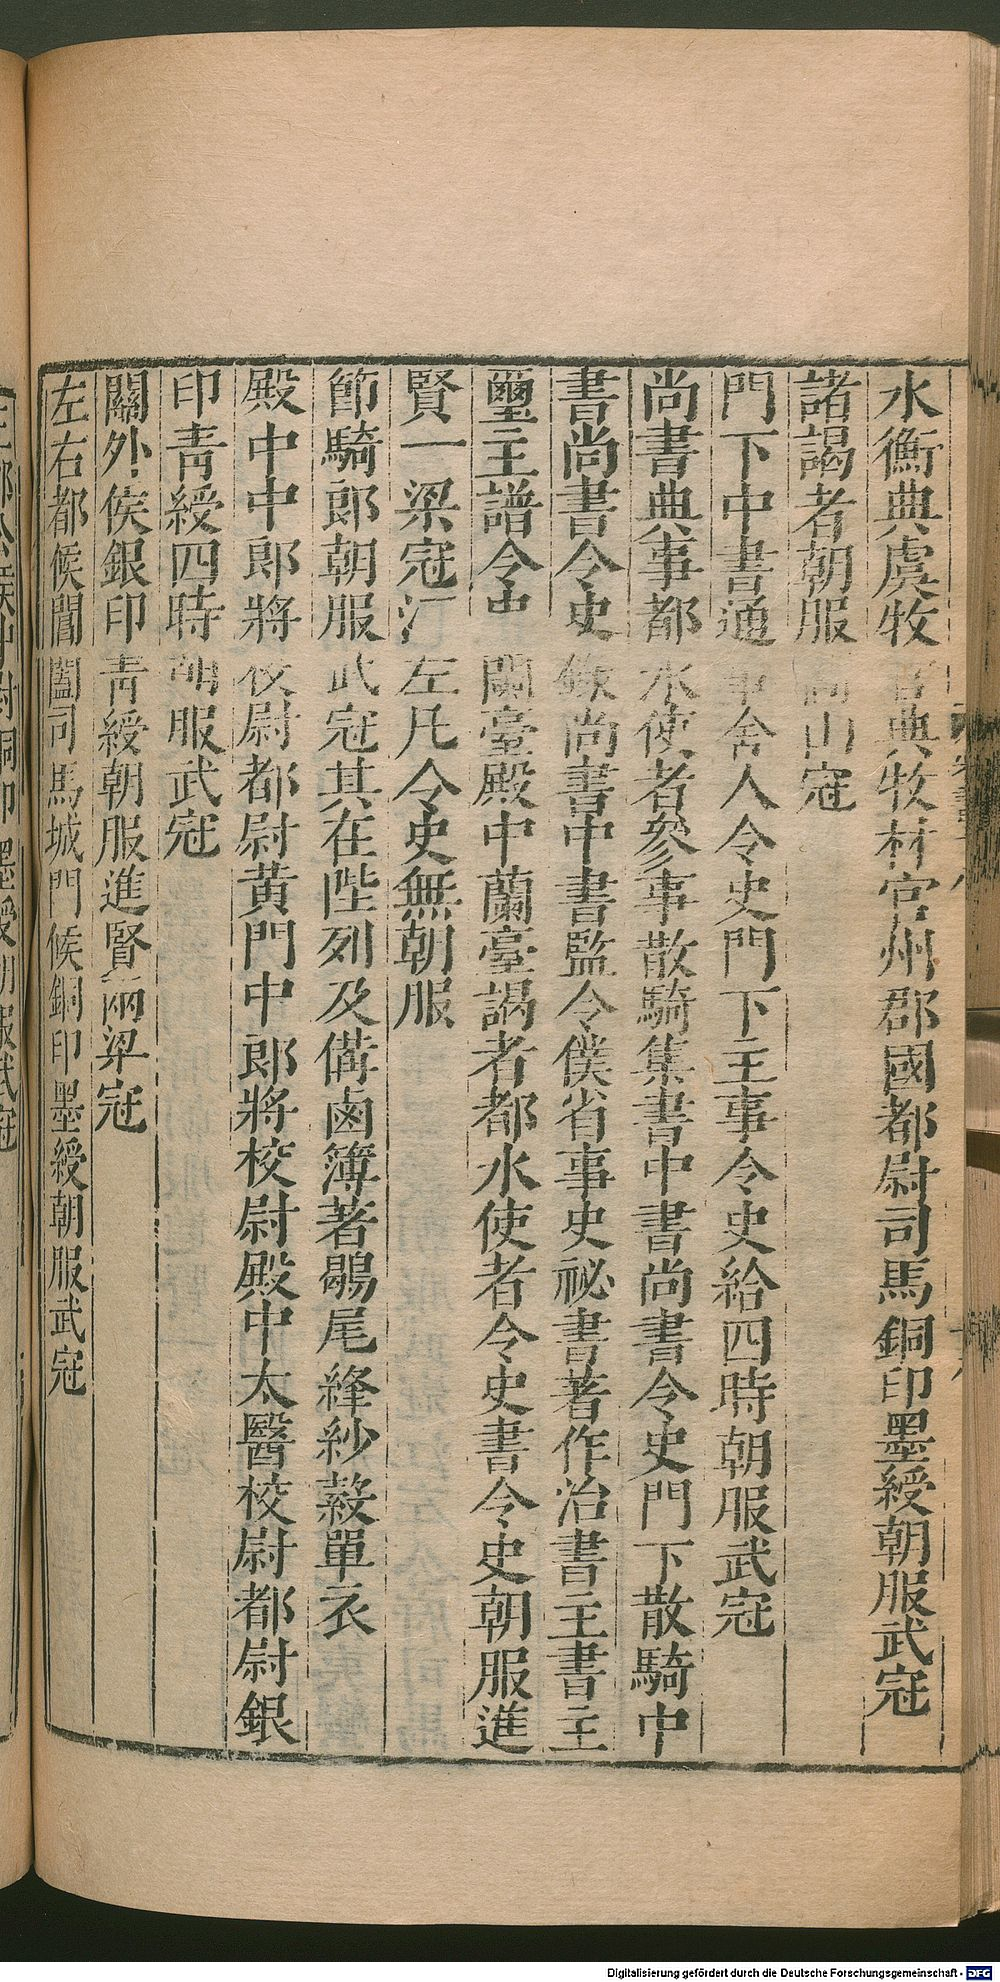 水衡典虞牧官典牧材官州郡國都尉司馬銅印墨綬朝服武冠
諸謁者朝服高山冠
門下中書通事舍人令史門下主事令史給四時朝服武冠
尚書典事都水使者參事散騎集書中書尚書令史門下散騎中
書尚書令史錄尚書中書監令僕省事史祕書著作治書主書主
璽主譜令史蘭臺殿中蘭臺謁者都水使者令史書令史朝服進
賢一梁冠江左凡令史無朝服
節騎郎朝服武冠其在陛列及備鹵簿著鶡尾絳紗縠單衣
殿中中郎將校尉都尉黃門中郎將校尉殿中太醫校尉都尉銀
印青綬四時朝服武冠
關外侯銀印青綬朝服進賢兩梁冠
左右都候閶闔司馬城門候銅印墨綬朝服武冠
銅印墨綬朝服武冠
Digitalisierung gefördert durch die Deutsche Forschungsgemeinschaft - DFG